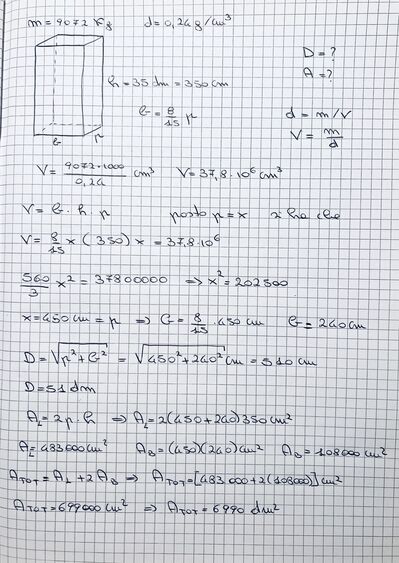 m = 9072 Kg d = 0,24 g/cm³
D = ?
A = ?
h = 35 dm = 350 cm
b = 8/15 p
d = m/V
V = m/d
b p
V = 9072·1000/0,24 cm³ V = 37,8·10⁶ cm³
V = b·h·p posto p = x si ha che
V = 8/15 x (350) x = 37,8·10⁶
560/3 x² = 37800000 ⇒ x² = 202500
x = 450 cm = p ⇒ b = 8/15 · 450 cm b = 240 cm
D = √(p² + b²) = √(450² + 240²) cm = 510 cm
D = 51 dm
A_L = 2p·h ⇒ A_L = 2(450+240)350 cm²
A_L = 483000 cm² A_B = (450)(240) cm² A_B = 108000 cm²
A_TOT = A_L + 2A_B ⇒ A_TOT = [483000 + 2(108000)] cm²
A_TOT = 699000 cm² ⇒ A_TOT = 6990 dm²